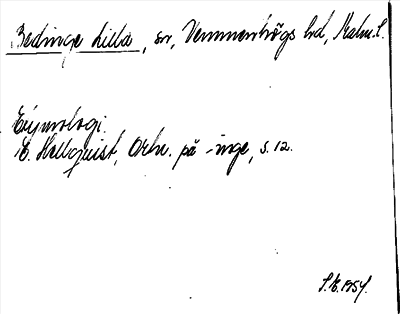 Bedinge Lilla, sn, Vemmenhögs hd, Malm. l.
Etymologi.
E. Hellquist, Ortn. på -inge, s. 12.
S.E. 1954.